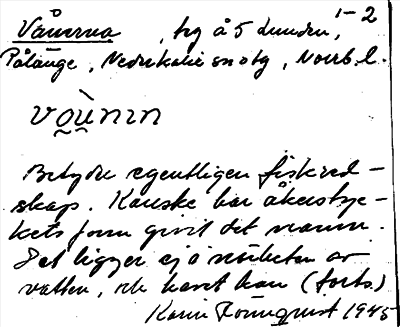 Vånerna, åg å 5 Lunden, 1-2
Pålänge, Nederkalix sn o tg, Norrb. l.
vo̰ṳ̀nın
Betyder egentligen fiskred-
skap. Kanske har åkersty-
kets form givit det namn.
Det ligger ej i närheten av
vatten, och havet kan (forts.)
Karin Rönnquist 1945